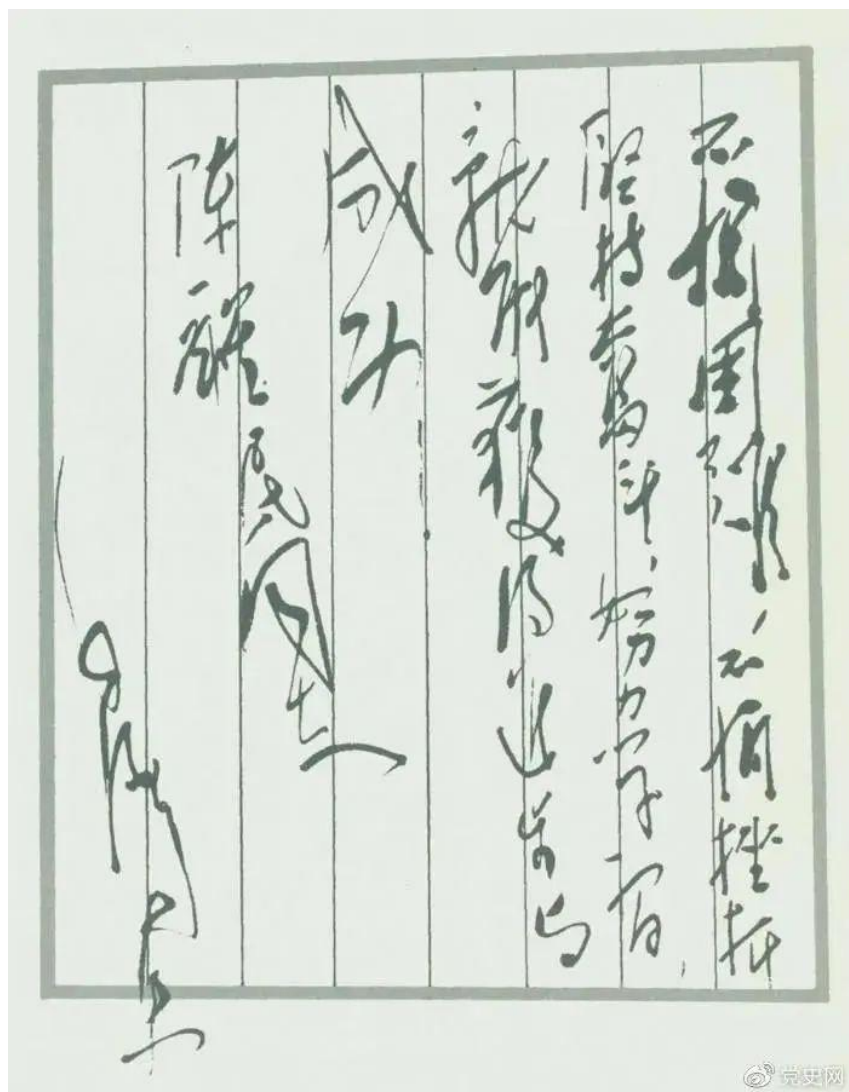 不怕困难、不怕挫折
坚持奋斗、努力学习
就能获得进步与
成功
陈民同志
毛泽东
党史网